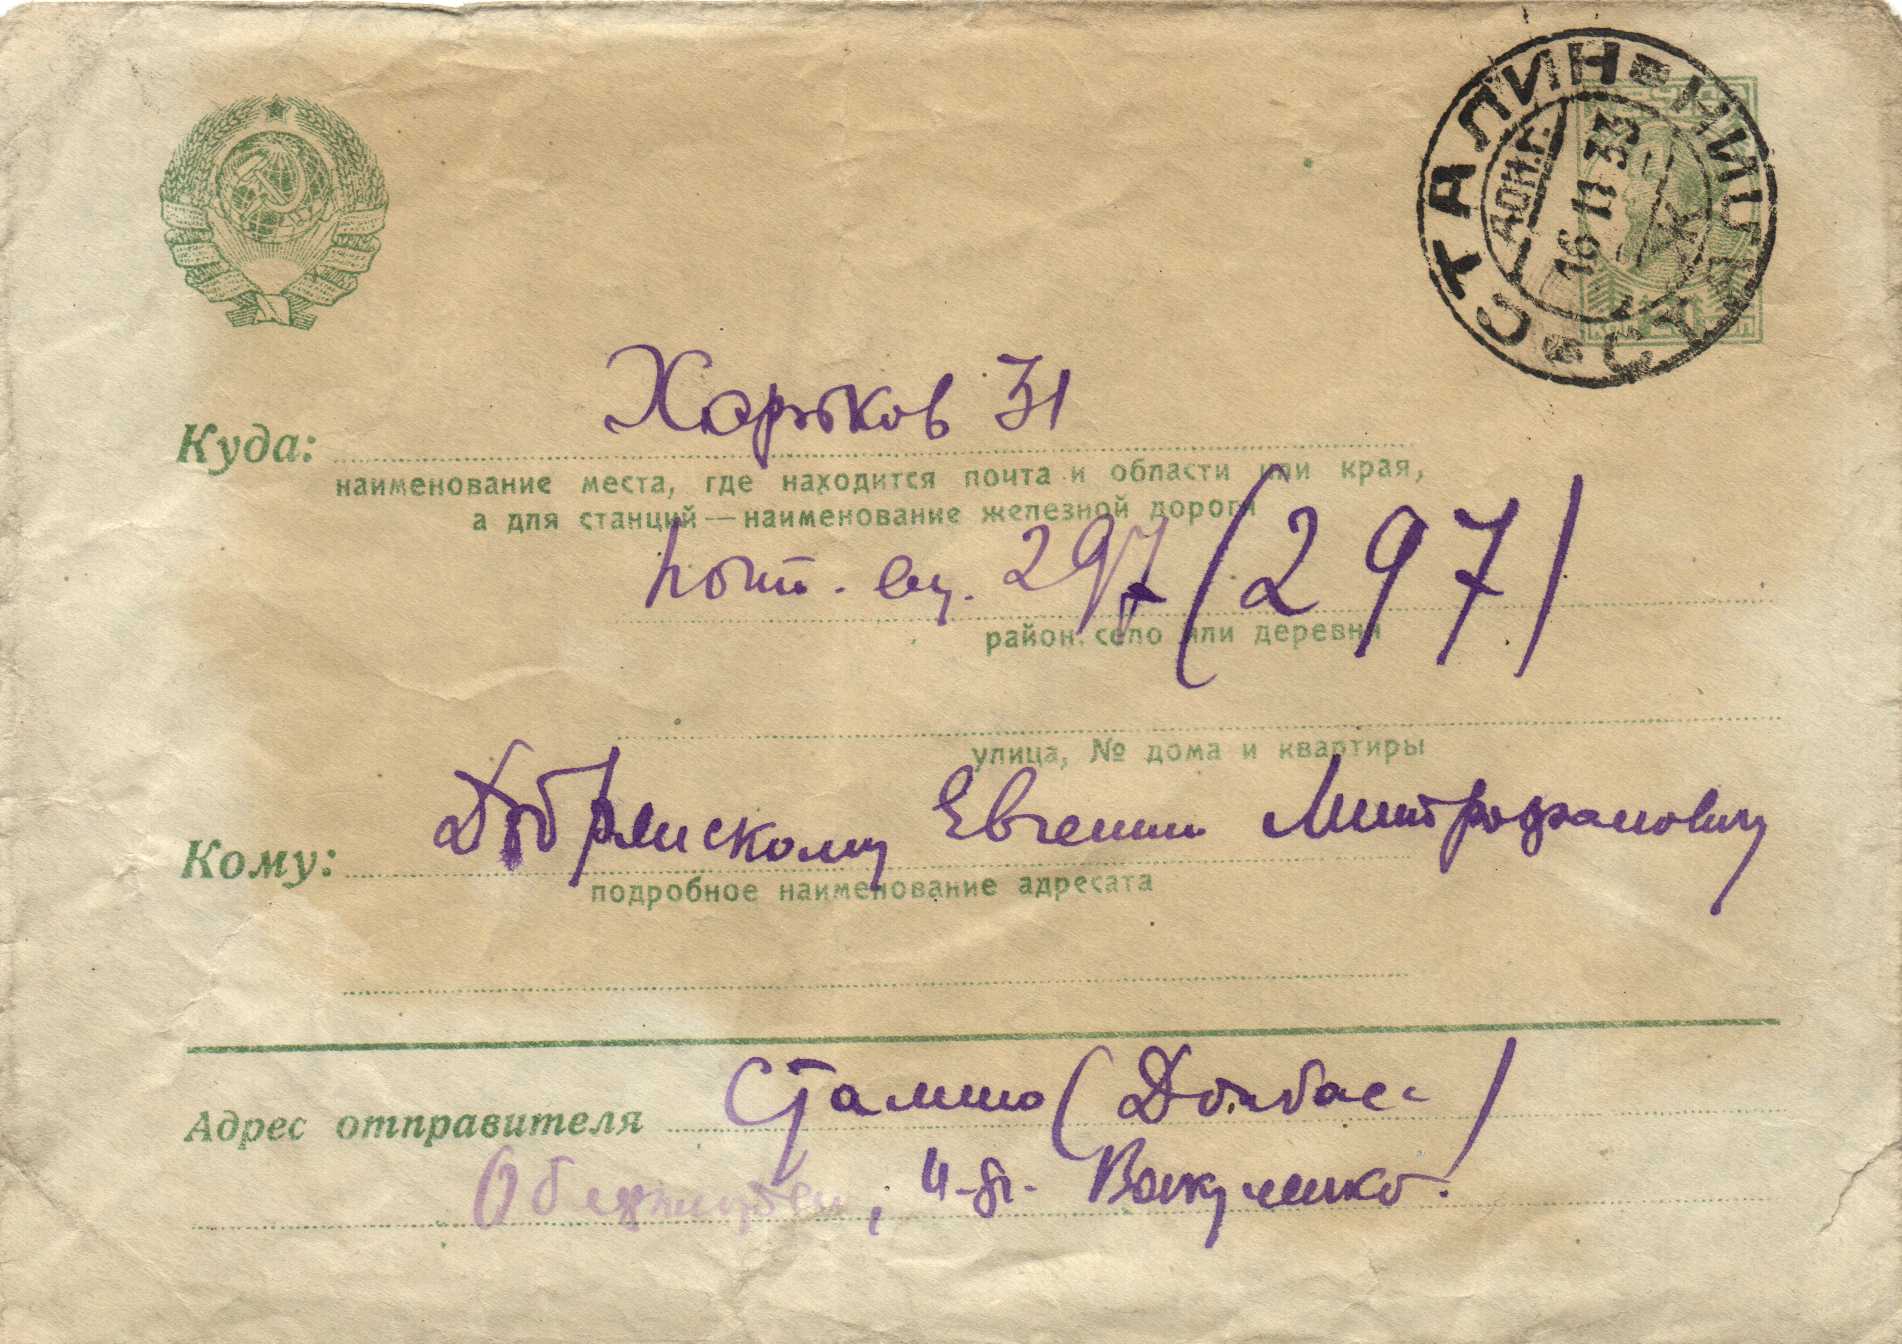 СТАЛИН
16 11 33
Ж
КОП 20 КОП
Харьков 31
Куда:
наименование места, где находится почта и области или края,
а для станций—наименование железной дороги
почт. ящ. 297 (297)
район, село или деревня
улица, № дома и квартиры
Добрянскому Евгению Митрофановичу
Кому:
подробное наименование адресата
Сталино (Донбасс)
Адрес отправителя
, Вакуленко.